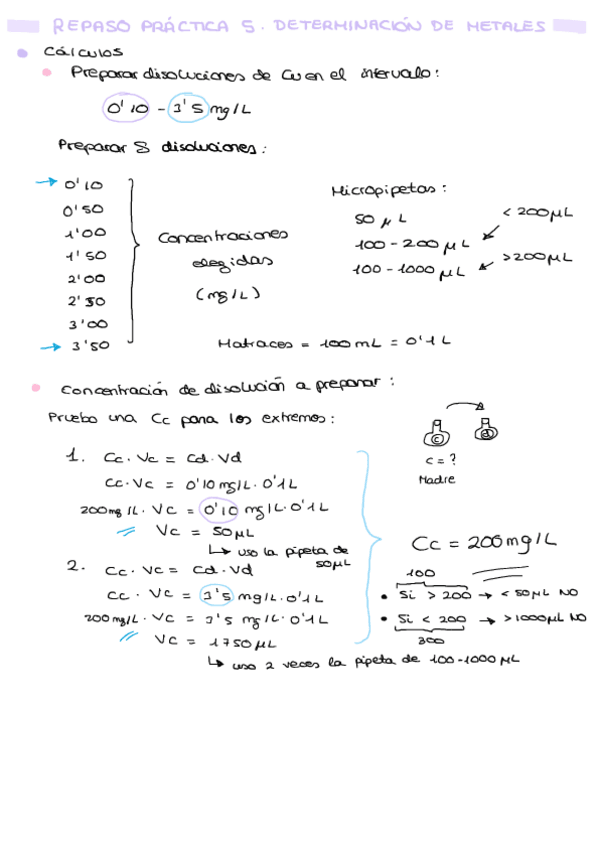 REPASO PRÁCTICA 5. DETERMINACIÓN DE METALES
Cálculos
Preparar disoluciones de Cu en el intervalo:
0'10 - 3'5 mg/L
Preparar 8 disoluciones:
→ 0'10
0'50
1'00
1'50
2'00
2'50
3'00
→ 3'50
Concentraciones
elegidas
(mg/L)
Micropipetas:
50 µL
100 - 200 µL
100 - 1000 µL
< 200 µL
> 200 µL
Matraces = 100 mL = 0'1 L
Concentración de disolución a preparar:
Pruebo una Cc para los extremos:
1. Cc · Vc = Cd · Vd
Cc · Vc = 0'10 mg/L · 0'1 L
200 mg/L · Vc = 0'10 mg/L · 0'1 L
Vc = 50 µL
↳ uso la pipeta de
50 µL
2. Cc · Vc = Cd · Vd
Cc · Vc = 3'5 mg/L · 0'1 L
200 mg/L · Vc = 3'5 mg/L · 0'1 L
Vc = 1750 µL
↳ uso 2 veces la pipeta de 100-1000 µL
c
d
c = ?
Madre
Cc = 200 mg/L
100
• Si > 200 → < 50 µL NO
• Si < 200 → > 1000 µL NO
300